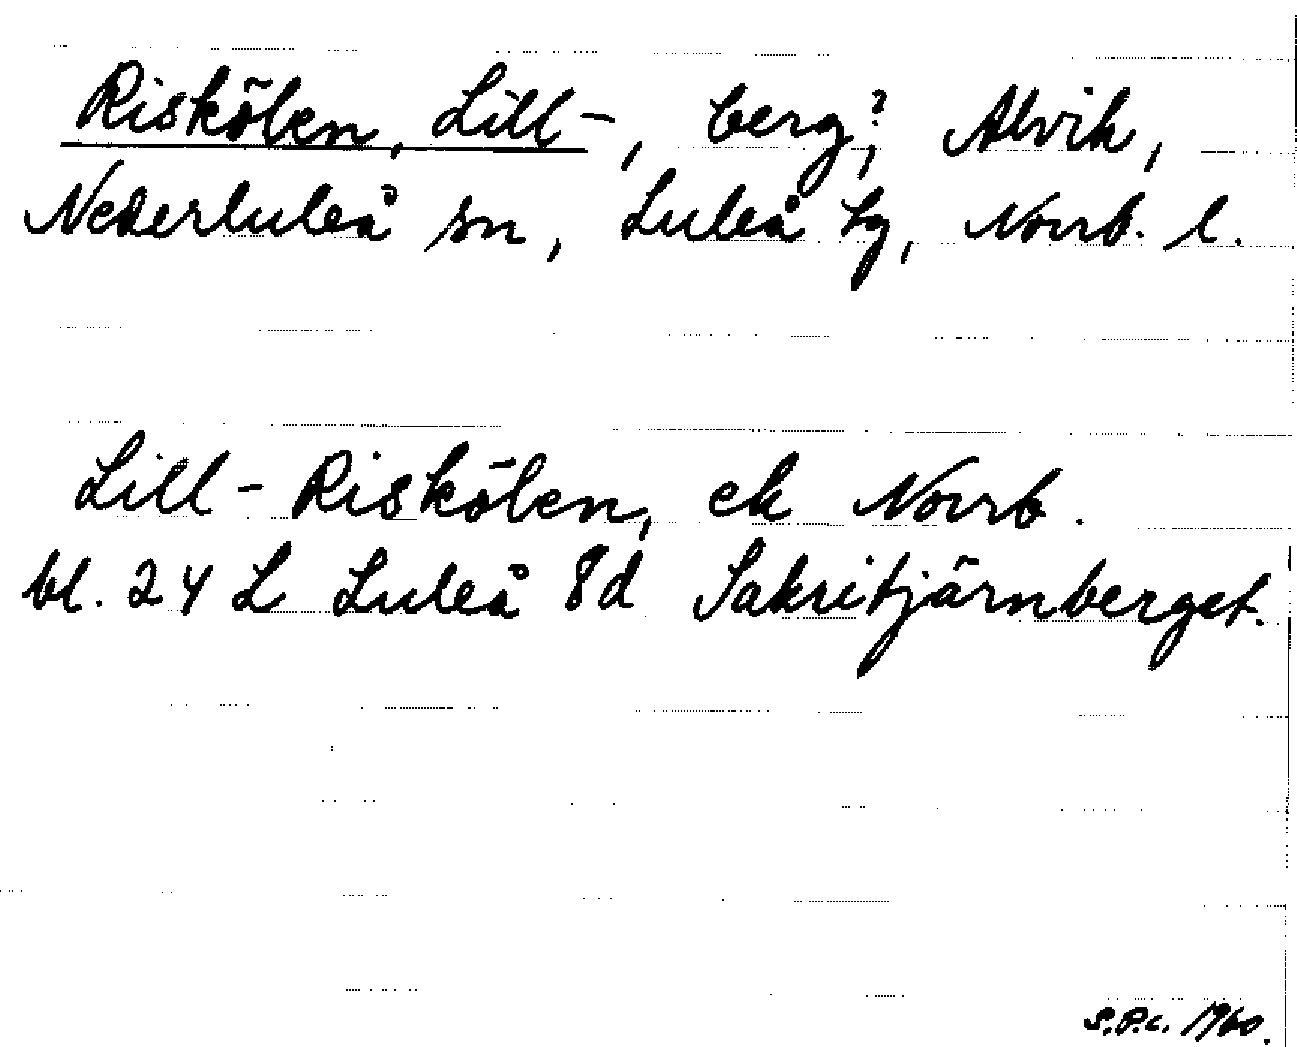 Riskölen, Lill-, berg?, Alvik,
Nederluleå sn, Luleå tg, Norrb. l.
Lill-Riskölen, ek Norrb.
bl. 24 L Luleå 8d Sakritjärnberget.
S.P.c. 1960.